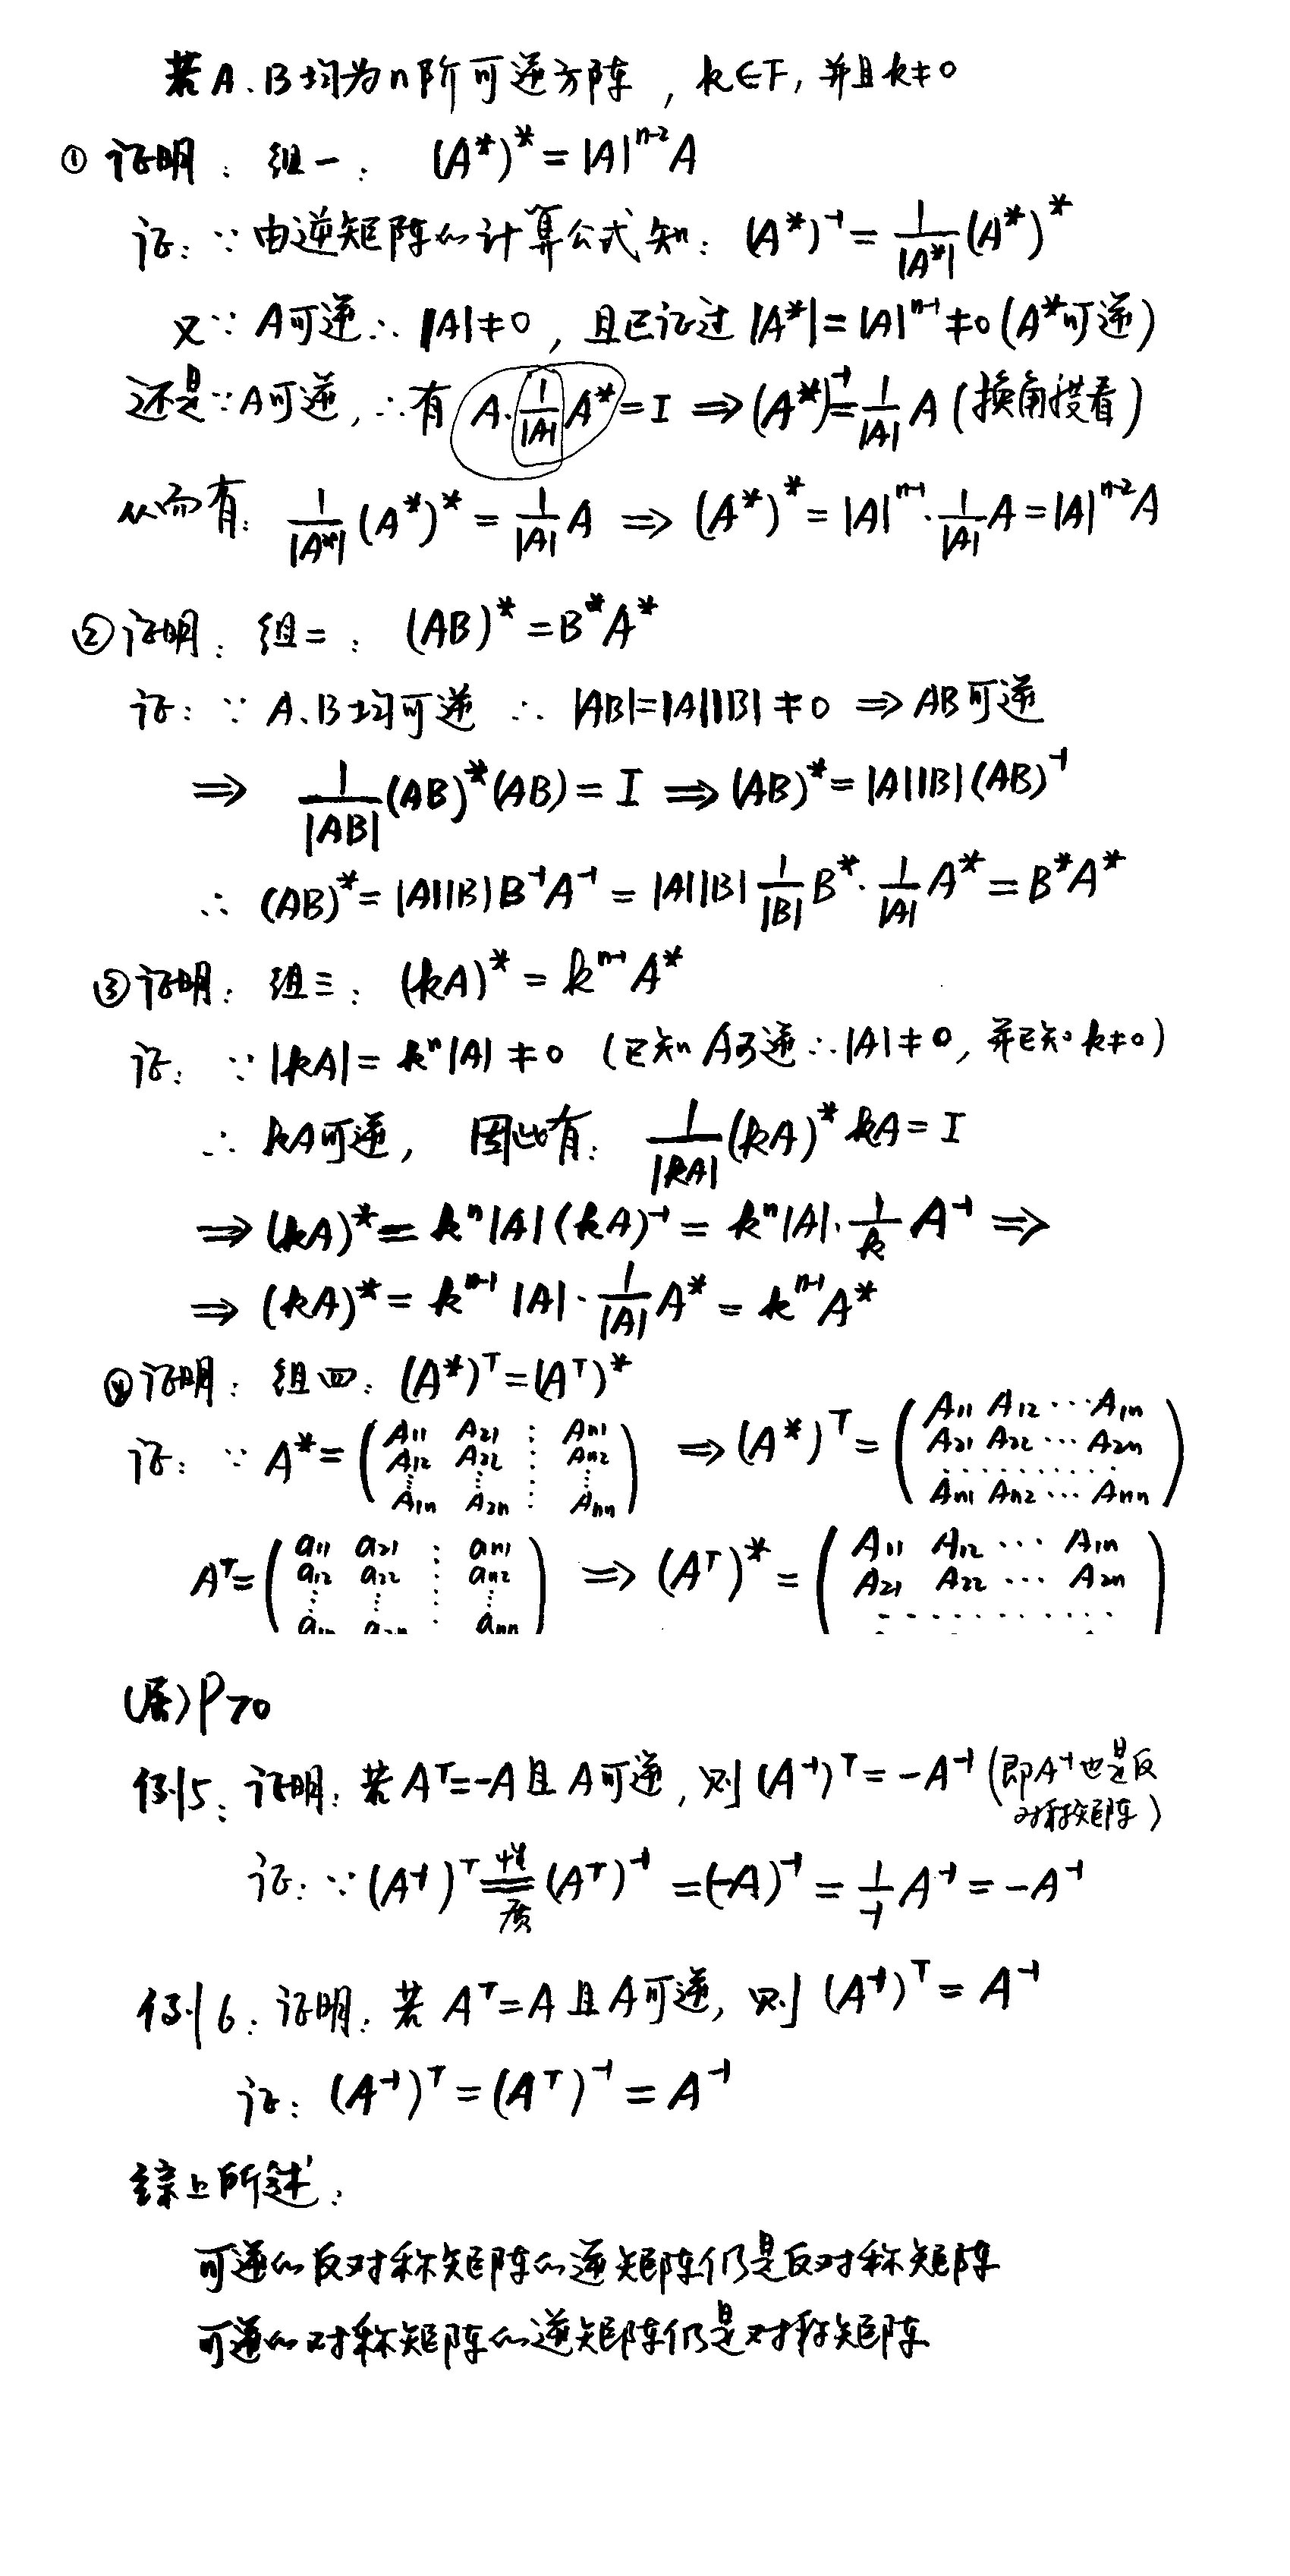 若A、B均为n阶可逆方阵，k∈F，并且k≠0
① 证明：组一：(A*)* = |A|ⁿ⁻²A
证：∵ 由逆矩阵的计算公式知：(A*)⁻¹ = 1/|A*| (A*)*
又∵ A可逆 ∴ |A|≠0，且已证过|A*| = |A|ⁿ⁻¹ ≠0 (A*可逆)
还是∵A可逆，∴有 A·1/|A| A* = I ⇒ (A*)⁻¹ = 1/|A| A (换角度看)
从而有：1/|A*| (A*)* = 1/|A| A ⇒ (A*)* = |A|ⁿ⁻¹·1/|A| A = |A|ⁿ⁻²A
② 证明：组二：(AB)* = B*A*
证：∵ A、B均可逆 ∴ |AB|=|A||B| ≠0 ⇒ AB可逆
⇒ 1/|AB| (AB)*(AB) = I ⇒ (AB)* = |A||B|(AB)⁻¹
∴ (AB)* = |A||B|B⁻¹A⁻¹ = |A||B| 1/|B| B*·1/|A| A* = B*A*
③ 证明：组三：(kA)* = kⁿ⁻¹A*
证：∵ |kA| = kⁿ|A| ≠0 (已知A可逆∴|A|≠0，并已知k≠0)
∴ kA可逆，因此有：1/|kA| (kA)* kA = I
⇒ (kA)* = kⁿ|A|(kA)⁻¹ = kⁿ|A|·1/k A⁻¹ ⇒
⇒ (kA)* = kⁿ⁻¹|A|·1/|A| A* = kⁿ⁻¹A*
④ 证明：组四：(A*)ᵀ = (Aᵀ)*
证：∵ A* = ( A₁₁ A₂₁ ⋮ Aₙ₁ ; A₁₂ A₂₂ ⋮ Aₙ₂ ; ⋮ ⋮ ⋮ ⋮ ; A₁ₙ A₂ₙ ⋮ Aₙₙ ) ⇒ (A*)ᵀ = ( A₁₁ A₁₂ ⋯ A₁ₙ ; A₂₁ A₂₂ ⋯ A₂ₙ ; ⋯⋯⋯ ; Aₙ₁ Aₙ₂ ⋯ Aₙₙ )
Aᵀ = ( a₁₁ a₂₁ ⋮ aₙ₁ ; a₁₂ a₂₂ ⋮ aₙ₂ ; ⋮ ⋮ ⋮ ⋮ ; a₁ₙ a₂ₙ ⋮ aₙₙ ) ⇒ (Aᵀ)* = ( A₁₁ A₁₂ ⋯ A₁ₙ ; A₂₁ A₂₂ ⋯ A₂ₙ ; ⋯⋯⋯
P70
例5：证明：若Aᵀ=-A且A可逆，则(A⁻¹)ᵀ = -A⁻¹ (即A⁻¹也是反
对称矩阵)
证：∵ (A⁻¹)ᵀ =性质= (Aᵀ)⁻¹ = (-A)⁻¹ = 1/-1 A⁻¹ = -A⁻¹
例6：证明：若 Aᵀ=A且A可逆，则 (A⁻¹)ᵀ = A⁻¹
证：(A⁻¹)ᵀ = (Aᵀ)⁻¹ = A⁻¹
综上所述：
可逆的反对称矩阵的逆矩阵仍是反对称矩阵
可逆的对称矩阵的逆矩阵仍是对称矩阵